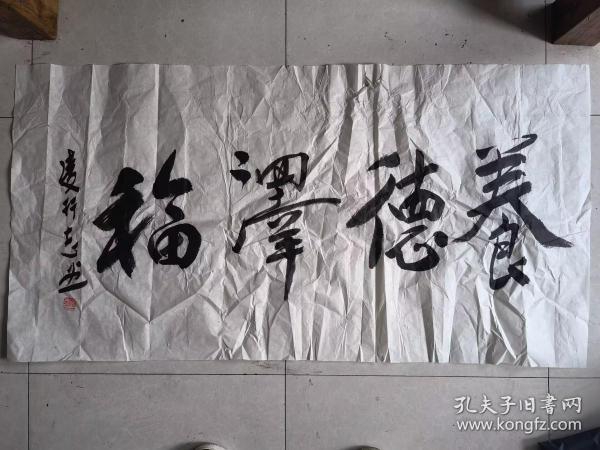 養德澤福
凌行志書
孔夫子旧書网
www.kongfz.com